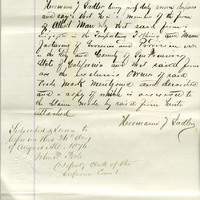 Hermann J. Sadler being duly sworn deposes
and says that he is a member of the firm
of Albert Mau & Co that said firm is
engaged in the Importing Selling and Manu
facturing of Groceries and Provisions
in the City and County of San Francisco
State of California and that said firm
are the exclusive owners of said
Trade Mark mentioned and described
and a copy of which is annexed to
the claim made by said firm hereto
attached.
Hermann J. Sadler
Subscribed & sworn to
before me this
day
of August AD. 1876
Deputy Clerk of the
Supreme Court